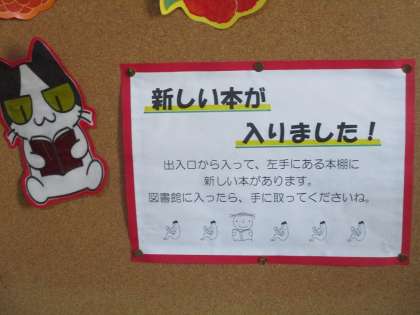 新しい本が
入りました！
出入口から入って、左手にある本棚に
新しい本があります。
図書館に入ったら、手に取ってくださいね。